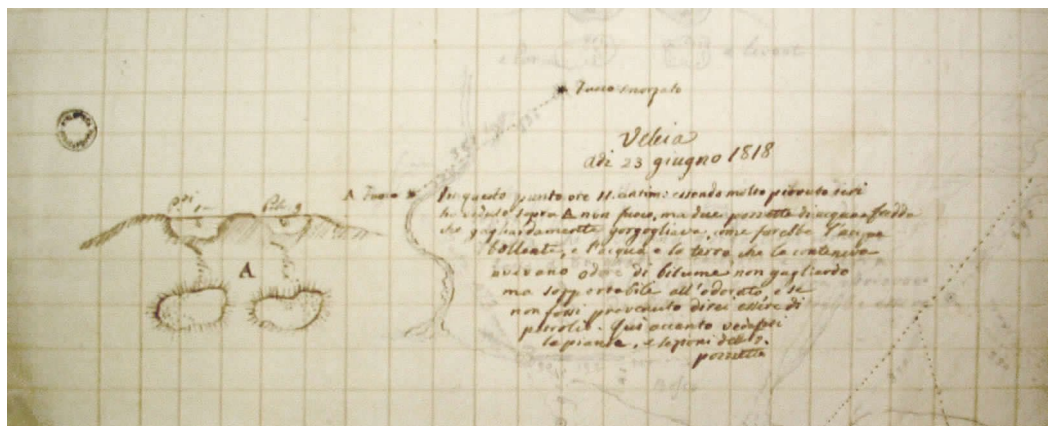 Fuoco smorzato
Veleia
adi 23 giugno 1818
A Fuoco
In questo punto ore 11. antim: essendo molto piovuto ieri
ho veduto sopra A non fuoco, ma due pozzette di acqua fredda
che gagliardamente gorgogliava, come farebbe l'acqua
bollente, e l'acqua e la terra che la conteneva
avevano odore di bitume non gagliardo
ma sopportabile all'odorato e se
non fossi prevenuto direi essere di
petrolio. Qui accanto vedesi
la pianta, e sezioni delle 2.
pozzette
A
Bosco
a levante